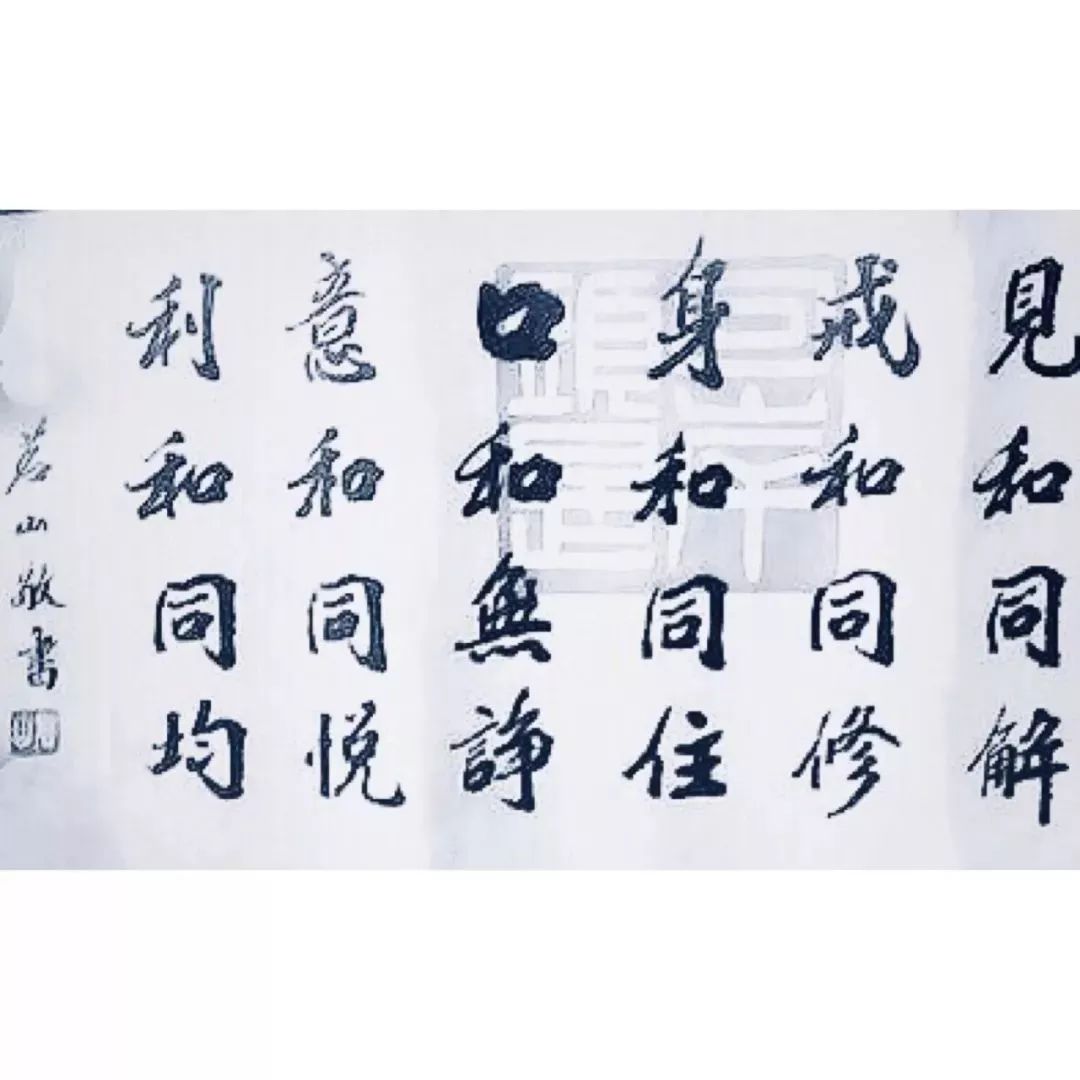 見和同解
戒和同修
身和同住
口和無諍
意和同悅
利和同均
若山敬書